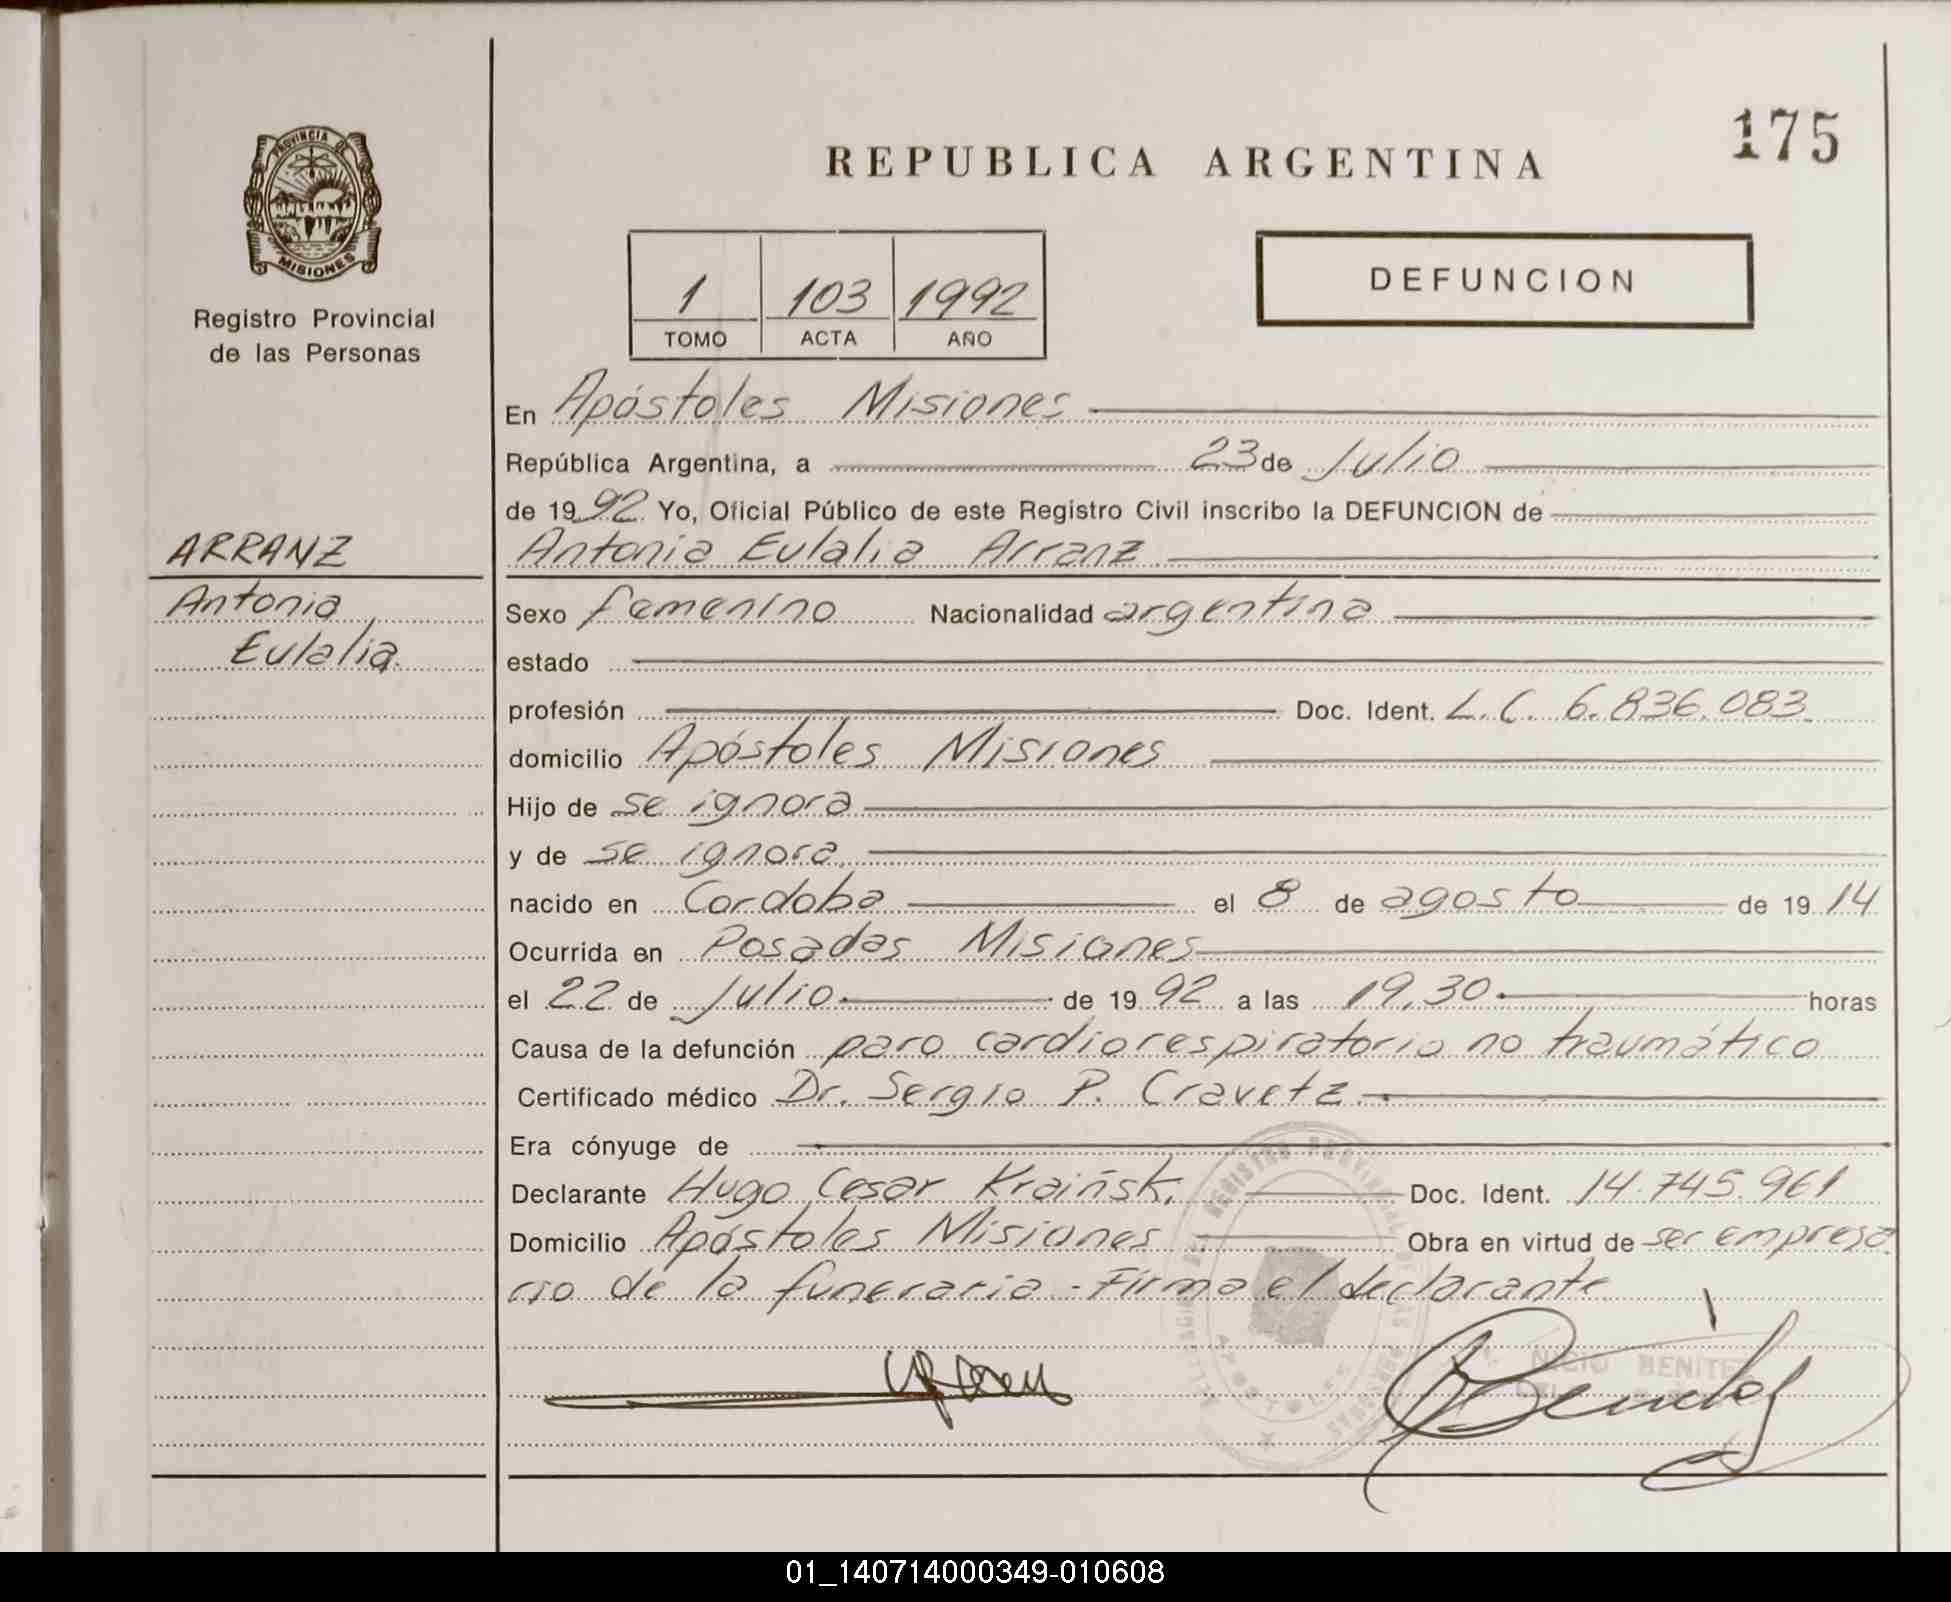 175
REPUBLICA ARGENTINA
PROVINCIA DE
MISIONES
Registro Provincial
de las Personas
1 103 1992
TOMO ACTA AÑO
DEFUNCION
En Apóstoles Misiones
República Argentina, a 23 de Julio
de 19 92 Yo, Oficial Público de este Registro Civil inscribo la DEFUNCION de
ARRANZ
Antonia
Eulalia
Antonia Eulalia Arranz
Sexo femenino Nacionalidad argentina
estado
profesión Doc. Ident. L.C. 6.836.083
domicilio Apóstoles Misiones
Hijo de se ignora
y de se ignora
nacido en Cordoba el 8 de agosto de 19 14
Ocurrida en Posadas Misiones
el 22 de Julio de 19 92 a las 19,30 horas
Causa de la defunción paro cardiorespiratorio no traumático
Certificado médico Dr. Sergio P. Cravetz
Era cónyuge de
Declarante Hugo Cesar Kraiñski Doc. Ident. 14.745.961
Domicilio Apóstoles Misiones Obra en virtud de ser empresa
rio de la funeraria - Firma el declarante
REGISTRO PROVINCIAL DE LAS PERSONAS
APOSTOLES
BENITEZ
01_140714000349-010608